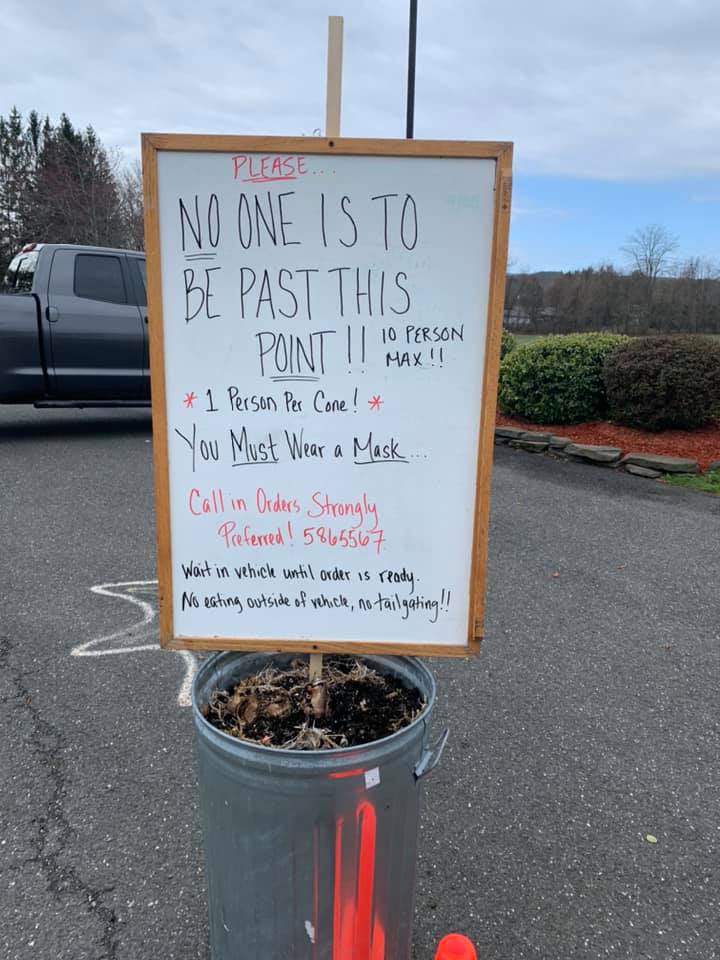 PLEASE...
NO ONE IS TO
BE PAST THIS
POINT!!
10 PERSON
MAX!!
* 1 Person Per Cone! *
You Must Wear a Mask...
Call in Orders Strongly
Preferred! 5865567
Wait in vehicle until order is ready.
No eating outside of vehicle, no tailgating!!